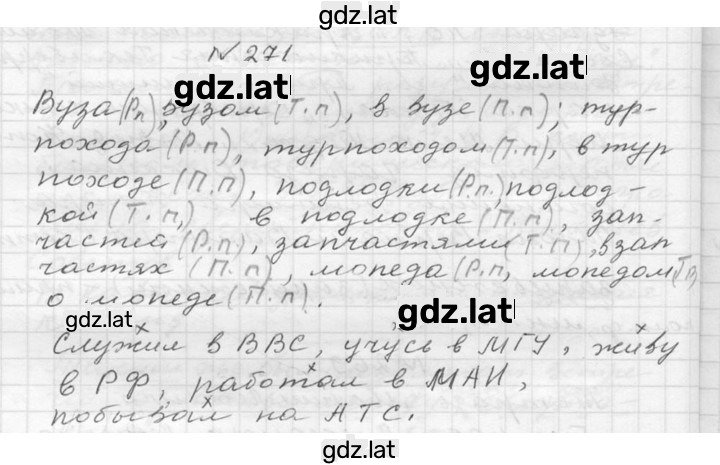 gdz.lat
№ 271
gdz.lat
gdz.lat
Вуза (Р.п), вузом (Т.п), в вузе (П.п); тур-
похода (Р.п), турпоходом (Т.п), в тур
походе (П.п), подлодки (Р.п., подлод-
кой (Т.п,) в подлодке (П.п), зап-
частей (Р.п), запчастями (Т.п), в зап
частях (П.п), мопеда (Р.п, мопедом (Тп)
о мопеде (П.п).
gdz.lat
gdz.lat
Служил в ВВС, учусь в МГУ, живу
в РФ, работал в МАИ,
побывал на АТС.
gdz.lat